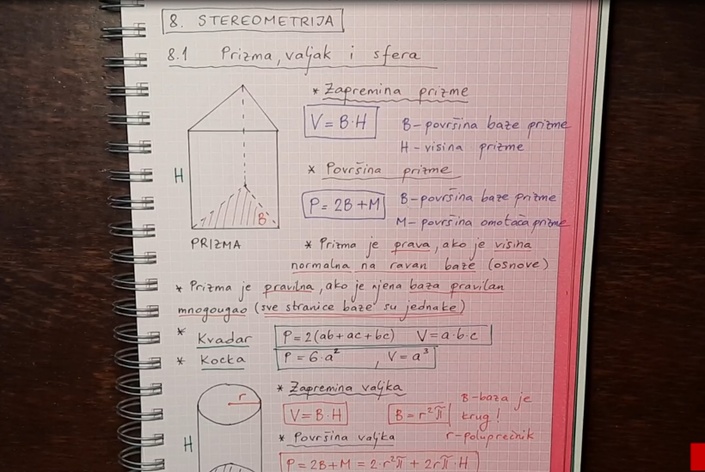 8. STEREOMETRIJA
8.1 Prizma, valjak i sfera
* Zapremina prizme
V = B·H
B – površina baze prizme
H – visina prizme
* Površina prizme
P = 2B + M
B – površina baze prizme
M – površina omotača prizme
H
B
PRIZMA
* Prizma je prava, ako je visina
normalna na ravan baze (osnove)
* Prizma je pravilna, ako je njena baza pravilan
mnogougao (sve stranice baze su jednake)
* Kvadar P = 2(ab + ac + bc) V = a·b·c
* Kocka P = 6·a² , V = a³
* Zapremina valjka
V = B·H B = r²π
B – baza je
krug!
r – poluprečnik
r
H
* Površina valjka
P = 2B + M = 2·r²π + 2rπ·H